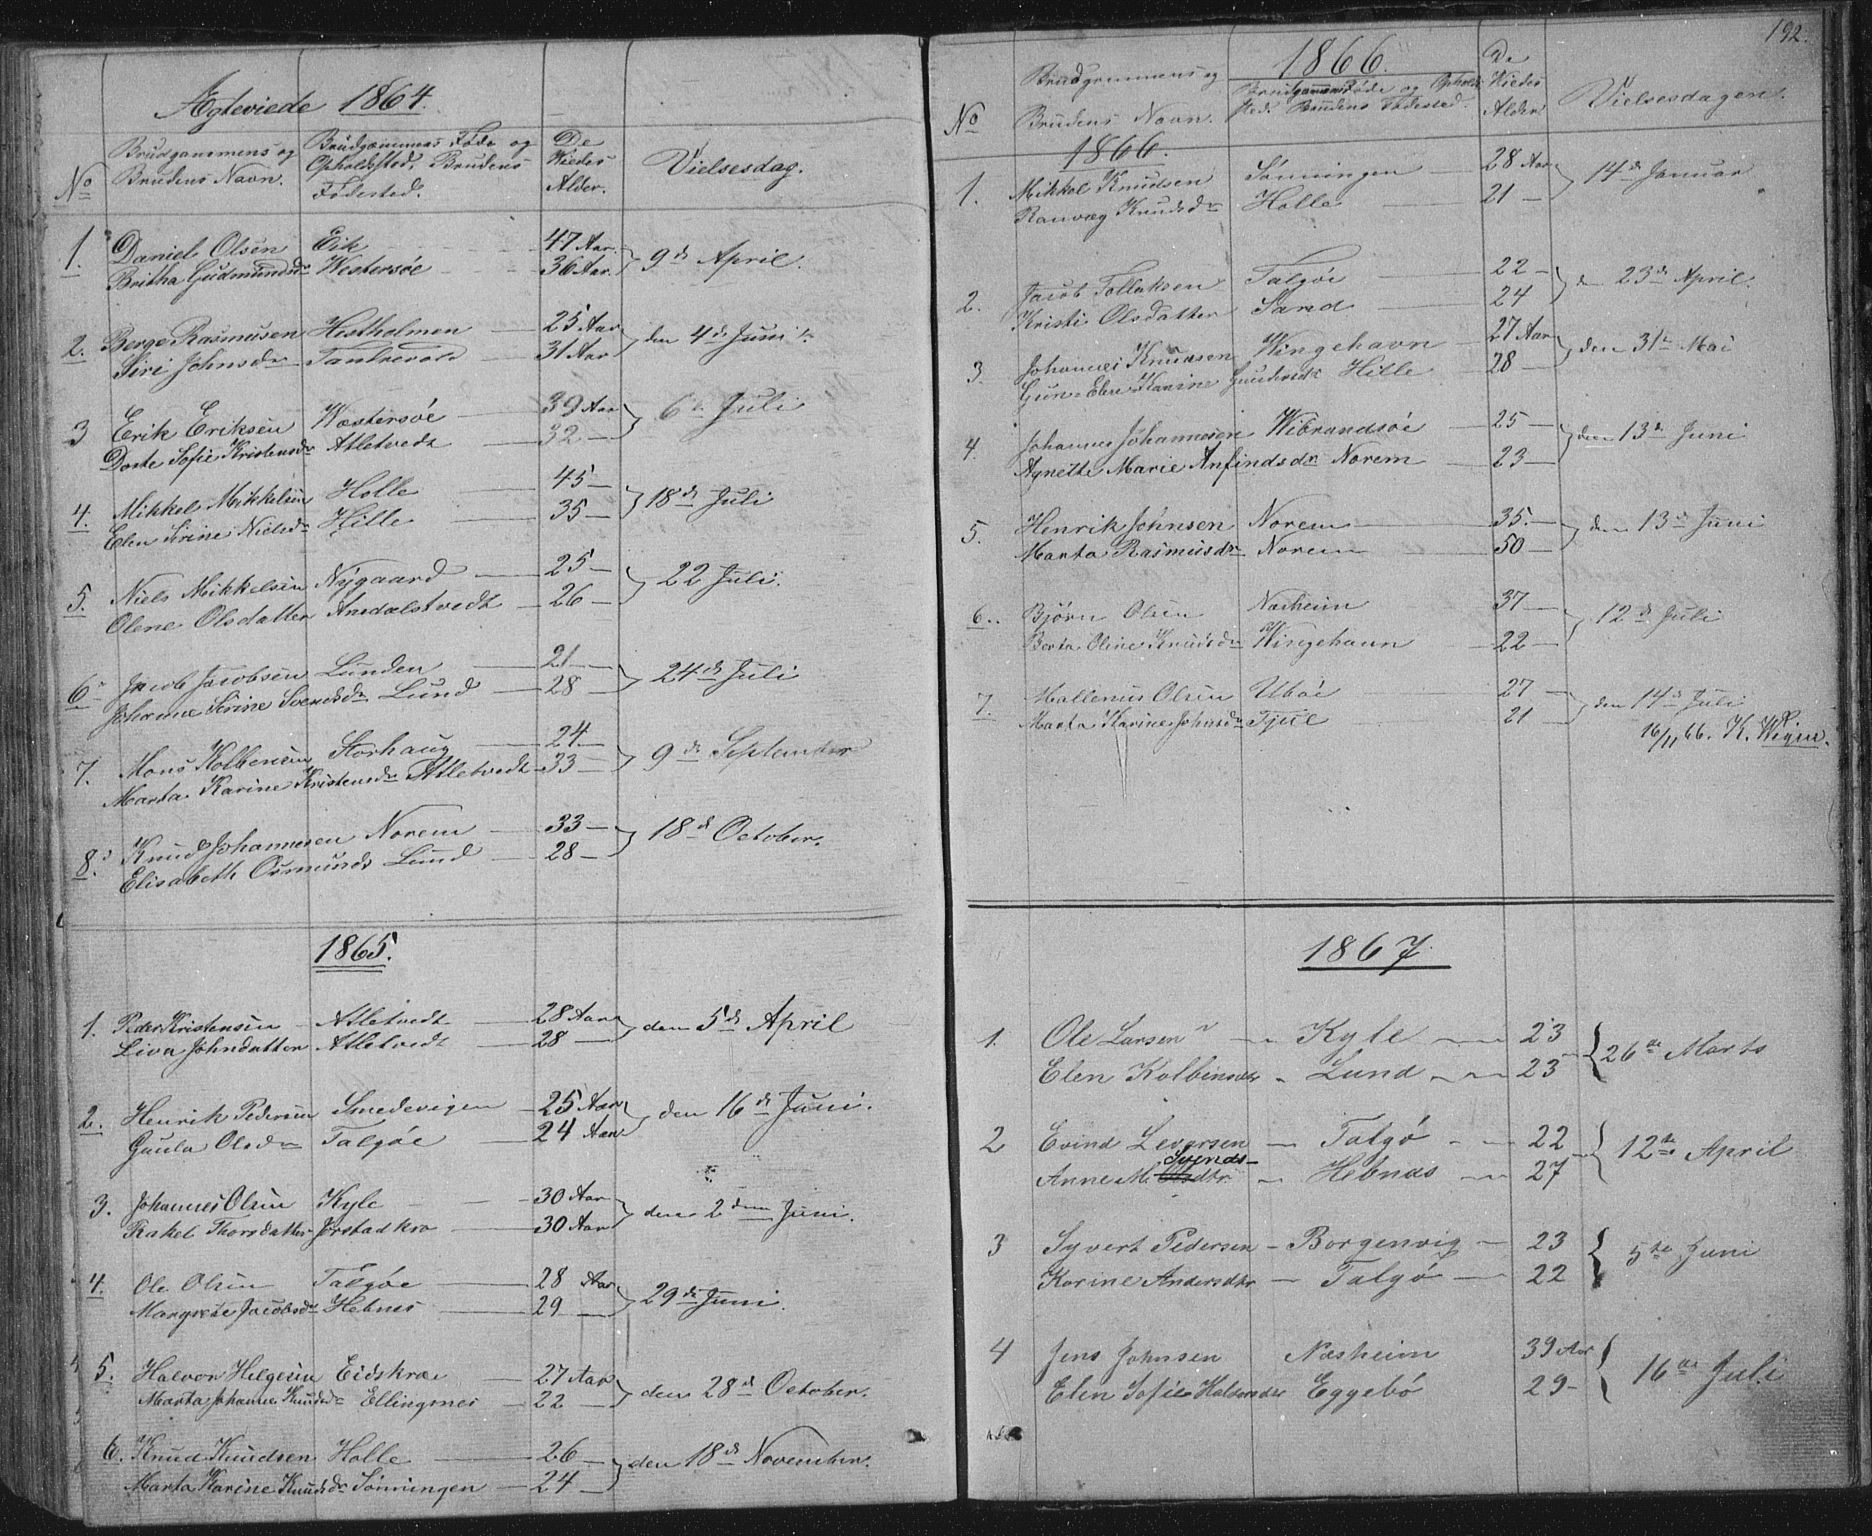 Ægteviede 1864.
No
Brudgommens og Brudens Navn.
Brudgommens Føde og Opholdssted, Brudens Fødested.
De Viedes Alder.
Vielsesdag.
1. Daniel Olsen Eik 47 Aar. 9de April.
Britha Gudmundsdr Westersøe 36 Aar.
2. Berge Rasmusen Hestholmen 25 Aar den 4de Juni
Siri Johnsdr 31 Aar
3 Erik Eriksen Wæstersøe 39 Aar 6te Juli
Dorte Sofie Kristensdr Atletvedt 32
4. Mikkel Mikkelsen Holle 45 18de Juli
Elen Sirine Nielsdr Hille 35
5. Niels Mikkelsen Nygaard 25 22 Juli.
Olene Olsdatter Amdalstvedt 26
6 Jacob Jacobsen Lunden 21 24de Juli
Johanne Sirine Svendsdr Lund 28
7. Mons Kolbensen Storhaug 24 9de September
Marta Karine Kristensdr Atletvedt 33
8. Knud Johannesen Norem 33 18de October.
Elisabeth Osmundsdr Lund 28
1865.
1. Peder Kristensen Atletvedt 28 Aar den 5de April
Liva Johndatter Atletvedt 28
2. Henrik Pedersen Smedevigen 25 Aar den 16de Juni.
Gunla Olsdr Talgøe 24 Aar
3. Johannes Olsen Kyle 30 Aar den 2den Juni.
Rakel Thorsdatter Jørstadkro 30 Aar
4. Ole Olsen Talgøe 28 Aar 29de Juni.
Margrete Jacobsdr Hebnes 29
5. Halvor Helgesen Eidskroe 27 Aar den 28de October.
Marta Johanne Knudsdr Ellingsnes 22
6. Knud Knudsen Holle 26 den 18de November.
Marta Karine Knudsdr Sønningen 24
192.
No
Brudgommens og Brudens Navn.
1866.
Brudgommens Føde og Opholds Sted. Brudens Fødested.
De Viedes Alder
Vielsesdagen.
1866.
1. Mikkel Knudsen Sønningen 28 Aar 14de Januar
Ranvæg Knudsdr Holle 21
2. Jacob Tollaksen Talgøe 22 d 23de April.
Kristi Olsdatter Sand 24
3. Johannes Knudsen Wingehavn 27 Aar den 31te Mai
Elen Karine Gundersdr Hille 28
4. Johannes Johannesen Wibrandsøe 25 den 13de Juni
Agnethe Marie Anfindsdr Norem 23
5. Henrik Johnsen Norem 35. den 13de Juni
Marta Rasmusdr Norem 50
6. Bjørn Olsen Næsheim 37 12te Juli
Berta Oline Knudsdr Wingehaun 22
7. Mallenius Olsen Uboe 27 den 14de Juli
Marta Karine Johnsdr Tjul 21
16/11 66. K. Wegner.
1867
1. Ole Larsen Kyle 23 26de Marts
Elen Kolbensdr Lund 23
2 Evind Levorsen Talgø 22 12te April
Svends-
Anne M. Olsdtr Hebnæs 27
3 Syvert Pedersen Borgenvig 23 5te Juni
Karine Andersdtr Talgø 22
4 Jens Johnsen Næsheim 39 Aar 16de Juli
Elen Sofie Halvorsdr Eggebø 29